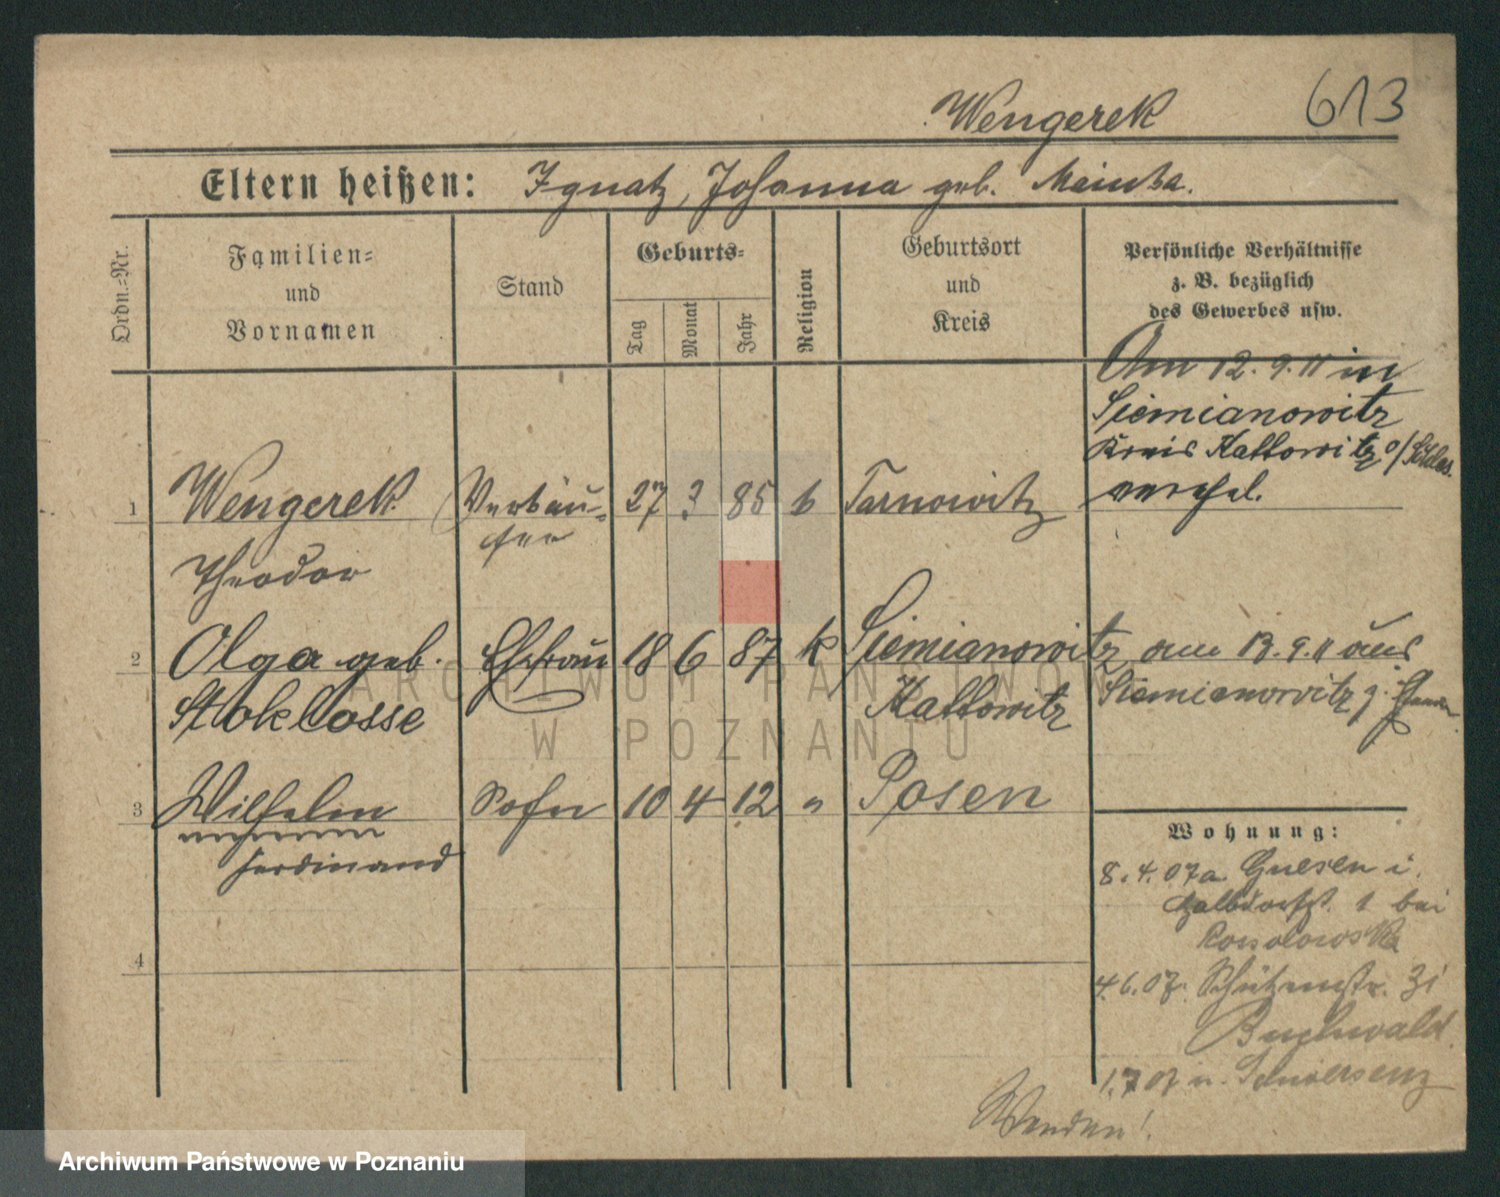 Wengerek 613
Eltern heißen: Ignatz, Johanna geb. Mainka.
Ordn.-Nr.
Familien-
und
Vornamen
Stand
Geburts-
Tag
Monat
Jahr
Religion
Geburtsort
und
Kreis
Persönliche Verhältnisse
z. B. bezüglich
des Gewerbes usw.
Am 12.9.11 in
Siemianowitz
Kreis Kattowitz o/Schles.
verehel.
1 Wengerek Verkäu- 27 3 85 k Tarnowitz
fer
Theodor
2 Olga geb. Ehefrau 18 6 87 k Siemianowitz am 13.9.11 aus
Stoklosse Kattowitz Siemianowitz z.
3 Wilhelm Sohn 10 4 12 " Posen
Ferdinand
4
Wohnung:
8.4.07 a. Gnesen i.
1 bei
4.6.07. Schützenstr. 31
Buchwald
1.7.07 n. Schwersenz
Wenden!
ARCHIWUM PAŃSTWOWE
W POZNANIU
Archiwum Państwowe w Poznaniu